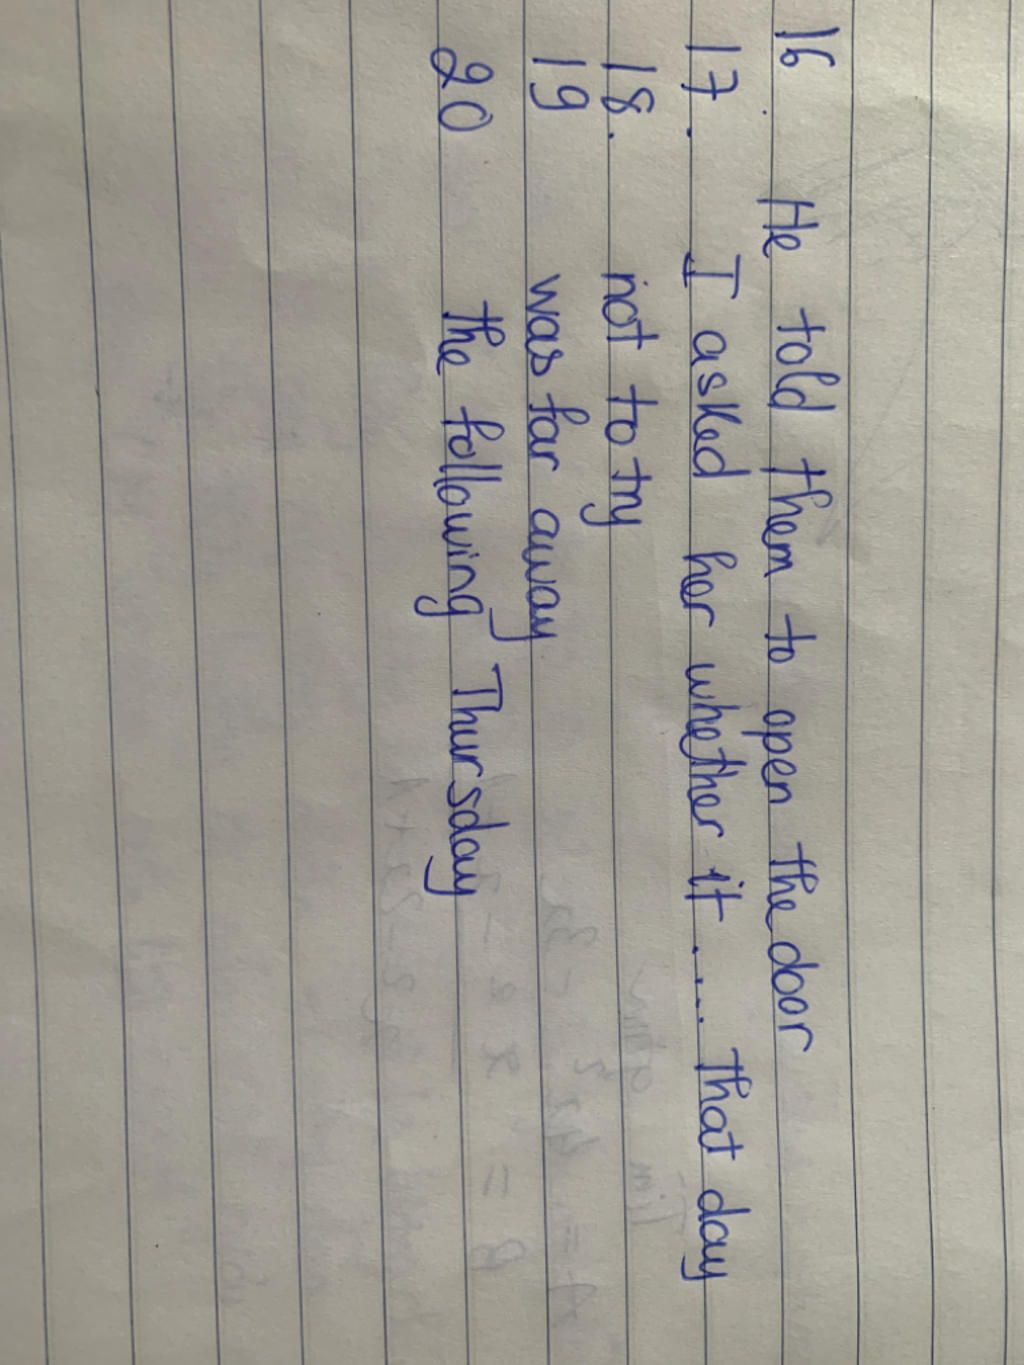 16 He told them to open the door
17. I asked her whether it .... that day
18. not to try
19 was far away
20 the following Thursday